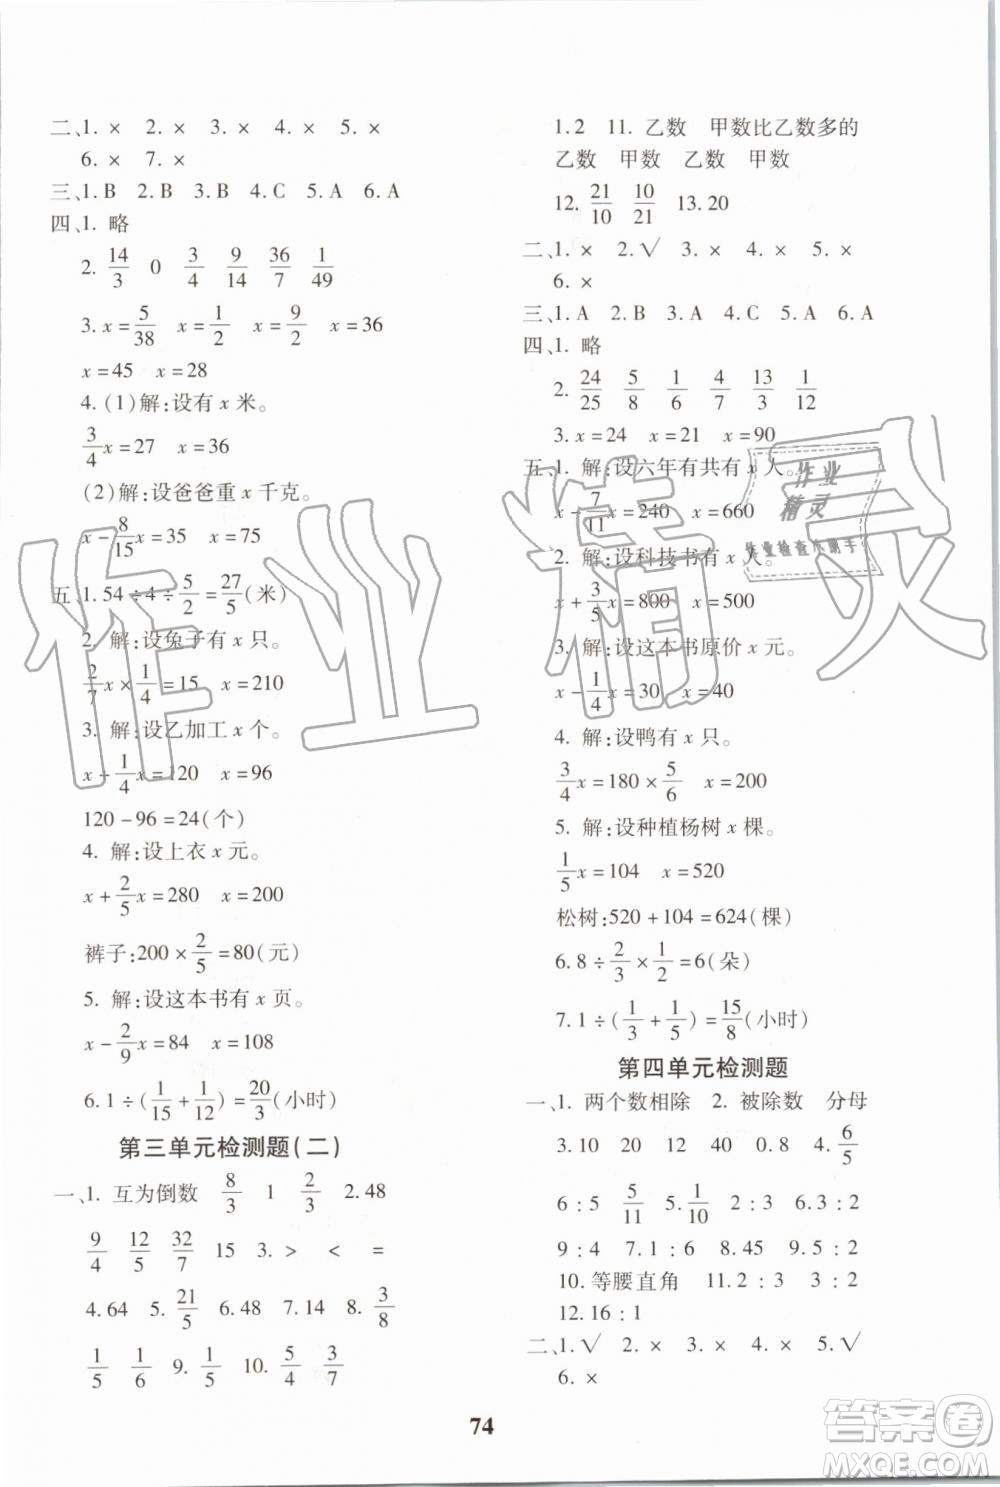 二、1. × 2. × 3. × 4. × 5. ×
6. × 7. ×
三、1. B 2. B 3. B 4. C 5. A 6. A
四、1. 略
2. 14/3 0 3/4 9/14 36/7 1/49
3. x = 5/38 x = 1/2 x = 9/2 x = 36
x = 45 x = 28
4. (1)解:设有 x 米。
3/4x = 27 x = 36
(2)解:设爸爸重 x 千克。
x - 8/15x = 35 x = 75
五、1. 54 ÷ 4 ÷ 5/2 = 27/5(米)
2. 解:设兔子有 x 只。
2/7x × 1/4 = 15 x = 210
3. 解:设乙加工 x 个。
x + 1/4x = 120 x = 96
120 - 96 = 24(个)
4. 解:设上衣 x 元。
x + 2/5x = 280 x = 200
裤子:200 × 2/5 = 80(元)
5. 解:设这本书有 x 页。
x - 2/9x = 84 x = 108
6. 1 ÷ (1/15 + 1/12) = 20/3(小时)
第三单元检测题(二)
一、1. 互为倒数 8/3 1 2/3 2. 48
9/4 12/5 32/7 15 3. > < =
4. 64 5. 21/5 6. 48 7. 14 8. 3/8
1/5 1/5 9. 1/5 10. 5/4 3/7
1.2 11. 乙数 甲数比乙数多的
乙数 甲数 乙数 甲数
12. 21/10 10/21 13. 20
二、1. × 2. √ 3. × 4. × 5. ×
6. ×
三、1. A 2. B 3. A 4. C 5. A 6. A
四、1. 略
2. 24/25 5/8 1/6 4/7 13/3 1/12
3. x = 24 x = 21 x = 90
五、1. 解:设六年有共有 x 人。
x - 7/11x = 240 x = 660
2. 解:设科技书有 x 人。
x + 3/5x = 800 x = 500
3. 解:设这本书原价 x 元。
x - 1/4x = 30 x = 40
4. 解:设鸭有 x 只。
3/4x = 180 × 5/6 x = 200
5. 解:设种植杨树 x 棵。
1/5x = 104 x = 520
松树:520 + 104 = 624(棵)
6. 8 ÷ 2/3 × 1/2 = 6(朵)
7. 1 ÷ (1/3 + 1/5) = 15/8(小时)
第四单元检测题
一、1. 两个数相除 2. 被除数 分母
3. 10 20 12 40 0.8 4. 6/5
6 : 5 5/11 5. 1/10 2 : 3 6. 3 : 2
9 : 4 7. 6 : 1 8. 45 9. 5 : 2
10. 等腰直角 11. 2 : 3 3 : 2
12. 16 : 1
二、1. √ 2. × 3. × 4. × 5. √
6. ×
74
作业精灵
作业
精灵
作业检查小助手
答案圈
MXQE.COM